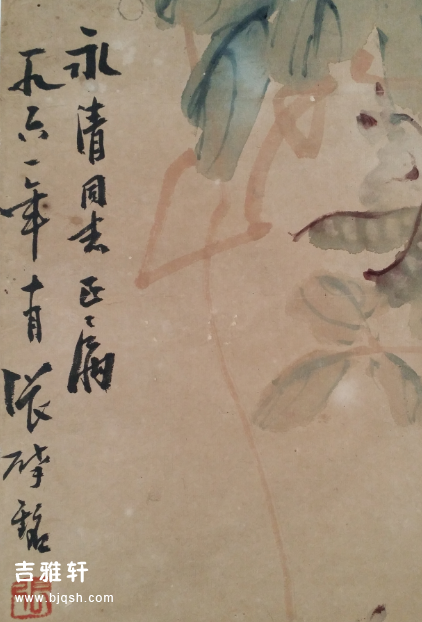 永清同志正之
一九六一年十月張肇銘
吉雅轩
www.bjqsh.com